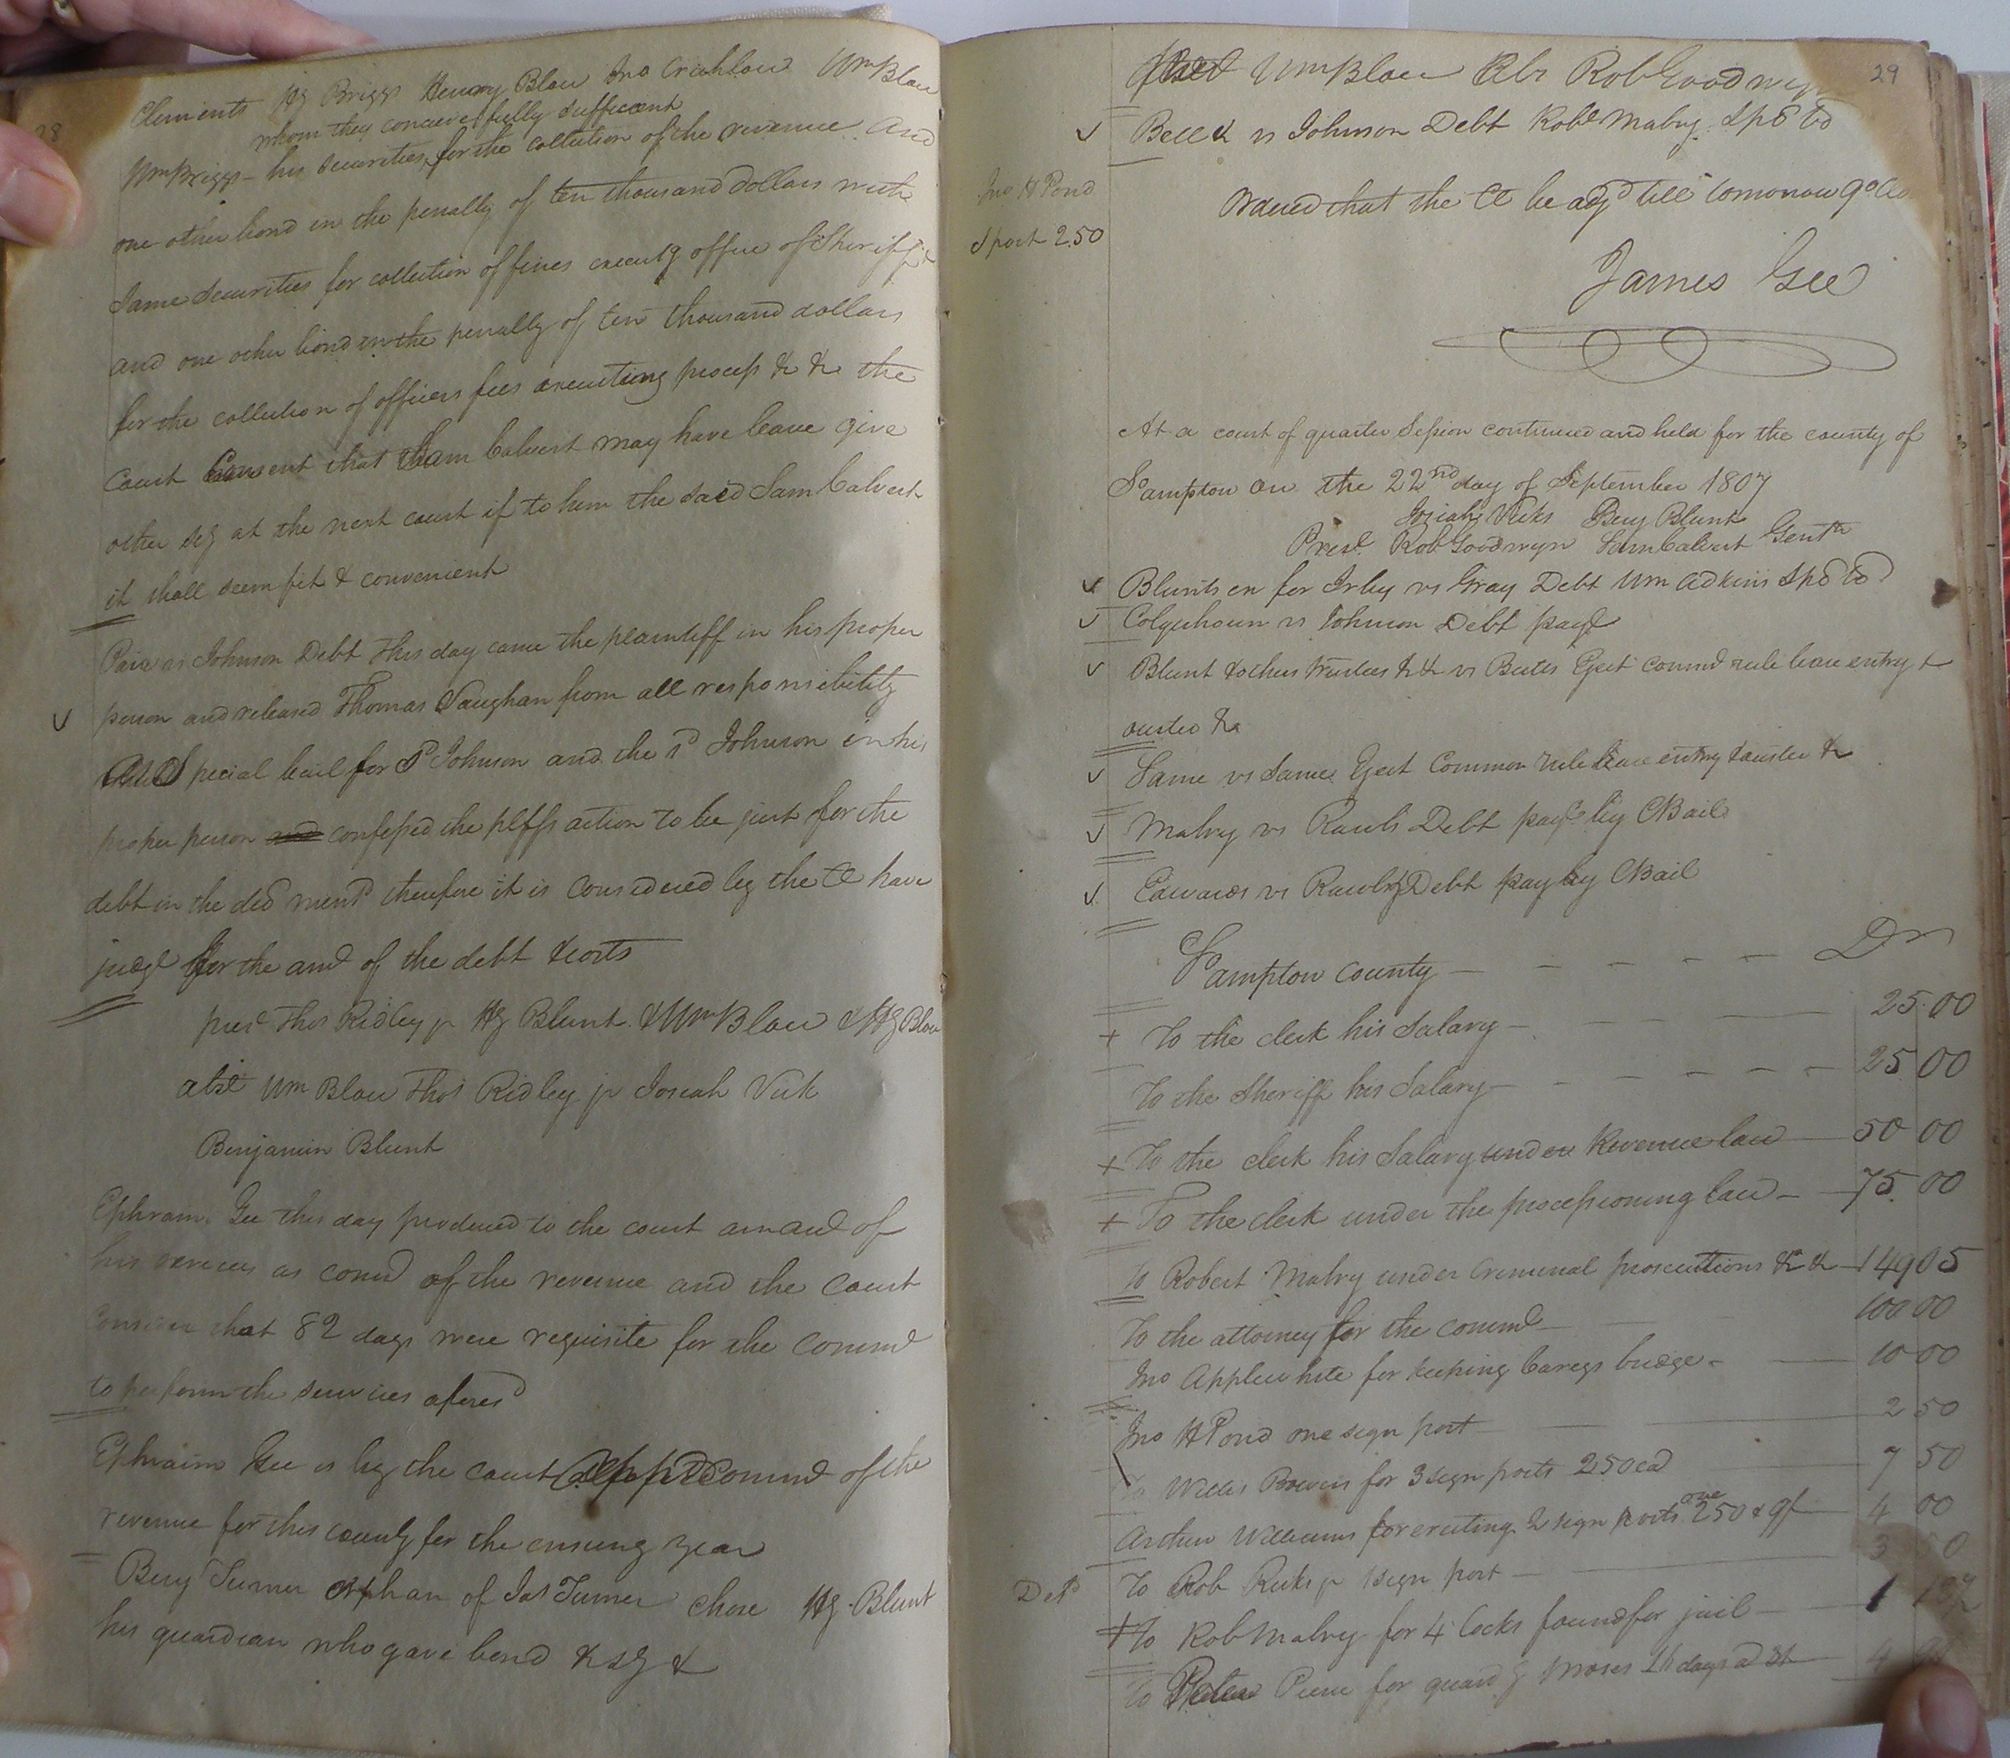 28
Clements Hy Briggs Henry Blow Jno Crichlow Wm Blow
whom they conceive fully sufficient
Wm Briggs - his securities for the collection of the revenue. and
one other bond in the penalty of ten thousand dollars with
same securities for collection of fines executg office of Sheriff &
and one other bond in the penalty of ten thousand dollars
for the collection of officers fees executing process &c &c the
Court Consent that Sam Calvert may have leave give
other scy at the next court if to him the said Sam Calvert
it shall seem fit & convenient
vs Johnson Debt This day came the plaintiff in his proper
person and released Thomas Vaughan from all responsibility
Special bail for sd Johnson and the sd Johnson in his
proper person and confessed the pltffs action to be just for the
debt in the decl mentd therefore it is considered by the Ct have
judgt for the amt of the debt & costs
prest Thos Ridley jr Hy Blunt & Wm Blow & Hy Blow
abst Wm Blow Thos Ridley jr Josiah Vick
Benjamin Blunt
Ephraim Gee this day produced to the court an acct of
his services as comr of the revenue and the court
consider that 82 days were requisite for the commr
to perform the services aforesd
Ephraim Gee is by the court appd Commr of the
revenue for this county for the ensuing year
Benj Turner orphan of Jas Turner chose Hy Blunt
his guardian who gave bond & scy &
29
Prest Wm Blow Abs Rob Goodwyn
Bell & vs Johnson Debt Robt Mabry Spd bd
Jno H Pond
1 post 2.50
Ordered that the Ct be adjd till tomorrow 9 oClo
James Gee
At a court of quarter Session continued and held for the county of
Sampton on the 22nd day of September 1807
Josiah Vicks Benj Blunt
Prest Rob Goodwyn Sam Calvert Gentn
Blunts ex for Irby vs Gray Debt Wm Adkins Spd bd
Colquhoun vs Johnson Debt payt
Blunt & others trustees &c &c vs Butts Eject commn rule lease entry &
ouster &c
Same vs Same Eject Common rule lease entry & ouster &c
Mabry vs Rawls Debt payt by CBail
Edwards vs Rawls Debt pay by CBail
Sampton County - - - - - - Dr
To the clerk his Salary - 25.00
To the Sheriff his Salary - 25 00
To the clerk his Salary under Revenue law - 50 00
To the clerk under the processioning law - 75.00
To Robert Mabry under Criminal prosecutions &c &c - 149 05
To the attorney for the commth - 100 00
Jno Applewhite for keeping Careys bridge - 10 00
Jno H Pond one sign post - 2 50
To Willis Bowers for 3 sign posts 250 ea 7 50
Arthur Williams for erecting 2 sign posts one 250 & 9/ 4 00
To Rob Ricks jr 1 sign post - 3 50
To Rob Mabry for 4 locks found for jail -
To Peter for guardg Moses 16 days